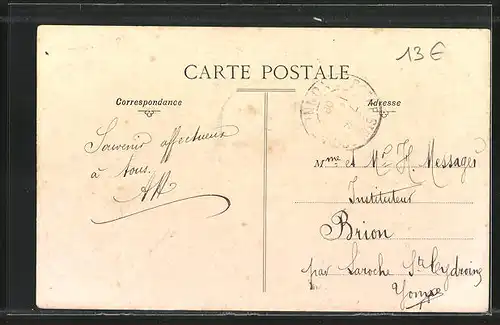 13 €
CARTE POSTALE
Correspondance
Adresse
Souvenir affectueux
à tous.
AH
Vme et Mr H. Messager
Instituteur
Brion
par Laroche St Cydroine
Yonne